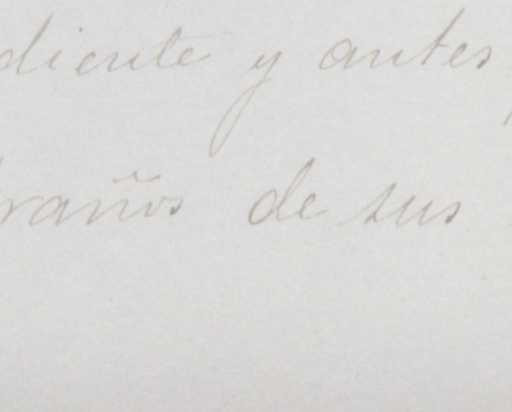 diente y antes
raños de sus